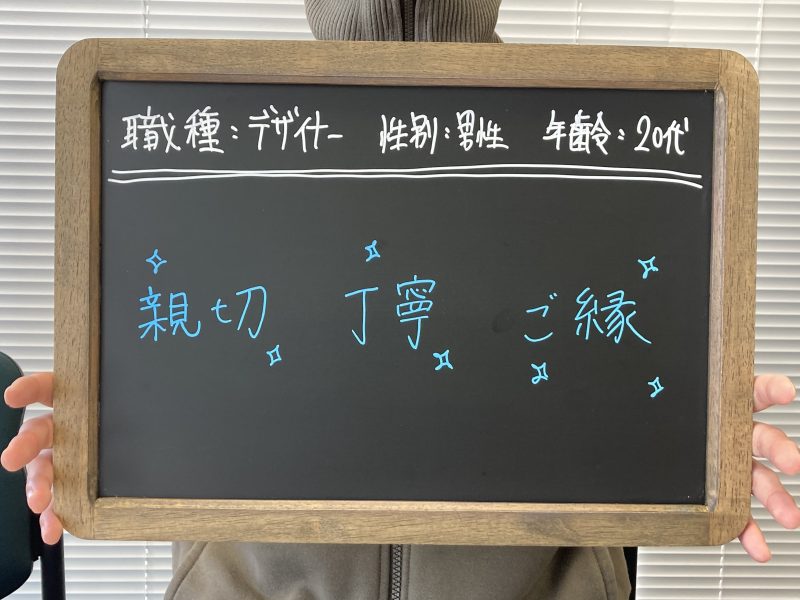 職種:デザイナー 性別:男性 年齢:20代
親切 丁寧 ご縁